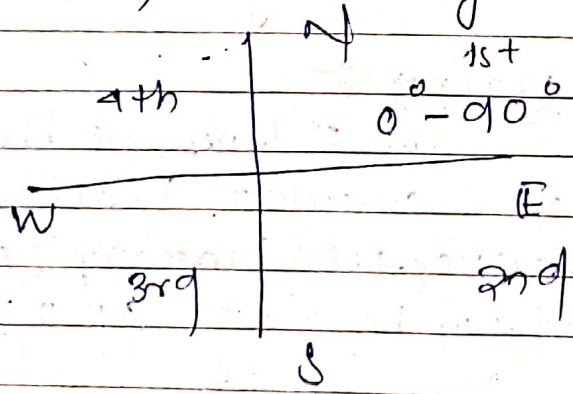 N
1st
4th
0° - 90°
W
E
3rd
2nd
S